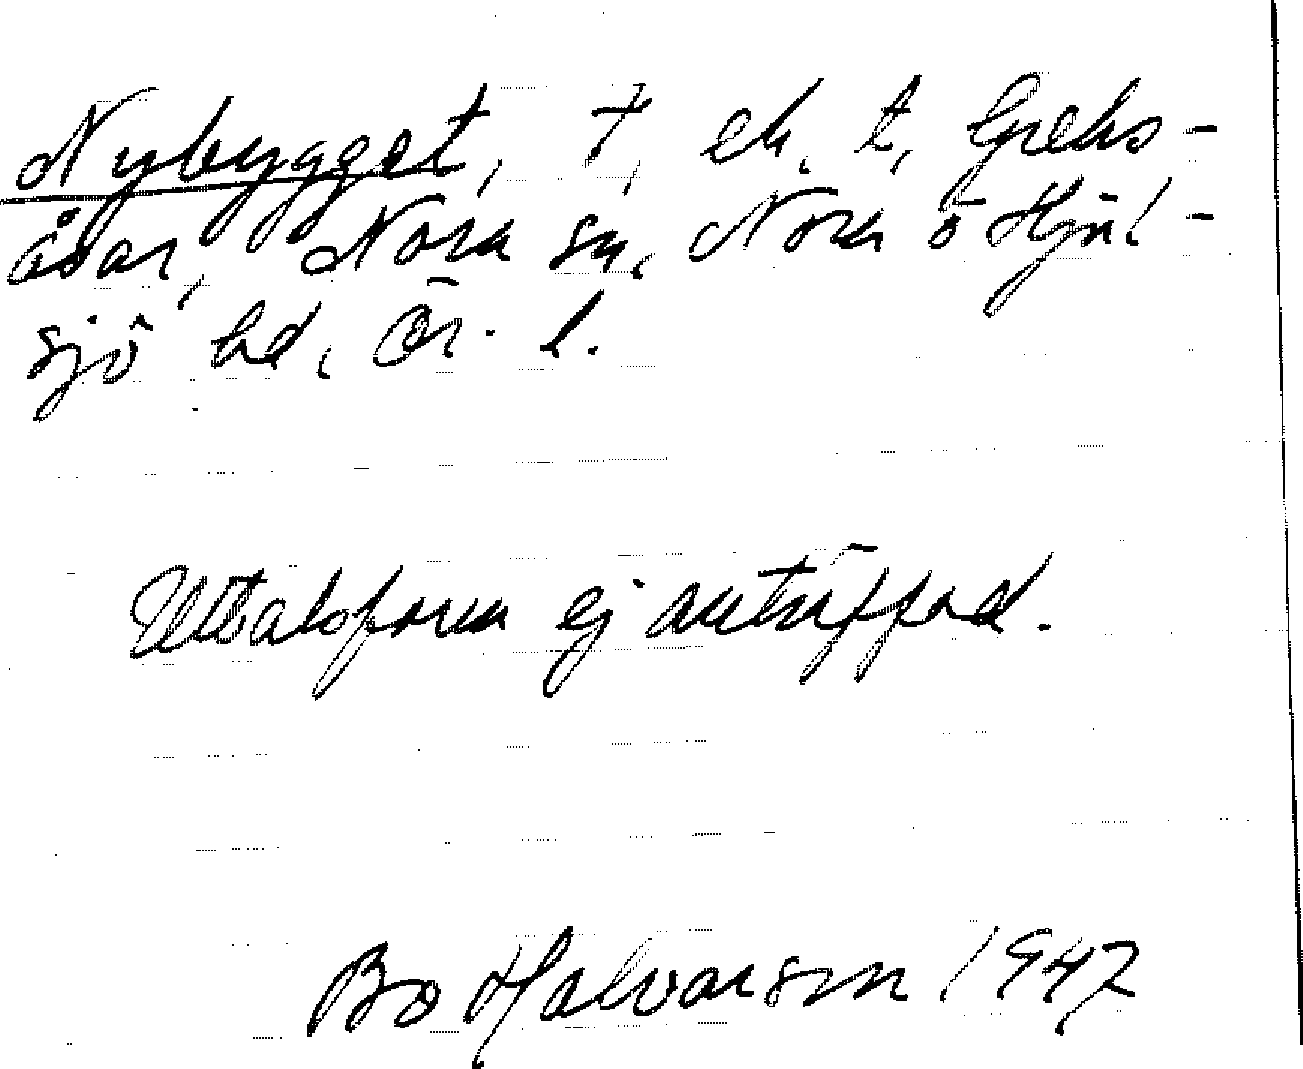 Nybygget, t, ek. t, Greks-
åsar, Nora sn, Nora o Hjul-
sjö hd, Ör. l.
Uttalsform ej anträffad.
Bo Halvarson 1947